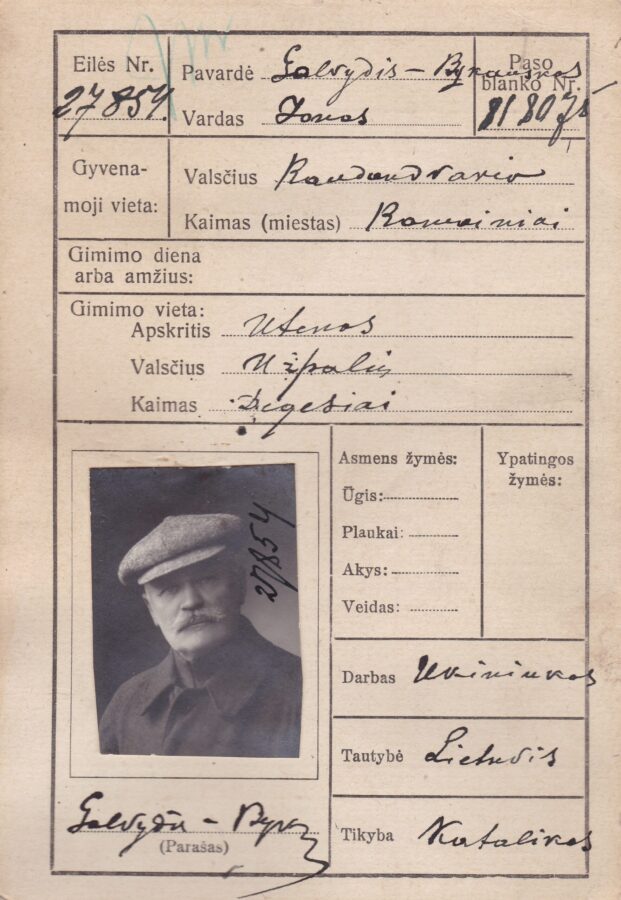 Eilės Nr.
27854.
Pavardė Galvydis - Bykauskas
Vardas Jonas
Paso
blanko Nr.
818075
Gyvena-
moji vieta:
Valsčius Raudondvario
Kaimas (miestas) Romainiai
Gimimo diena
arba amžius:
Gimimo vieta:
Apskritis Utenos
Valsčius Užpalių
Kaimas Degesiai
27854
Asmens žymės:
Ūgis:
Plaukai:
Akys:
Veidas:
Ypatingos
žymės:
Darbas Ukininkas
Tautybė Lietuvis
Tikyba Katalikas
Galvydis -
(Parašas)